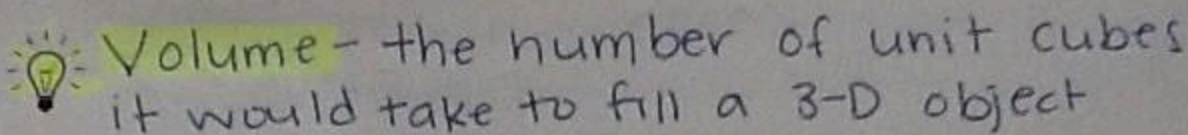 Volume - the number of unit cubes
it would take to fill a 3-D object